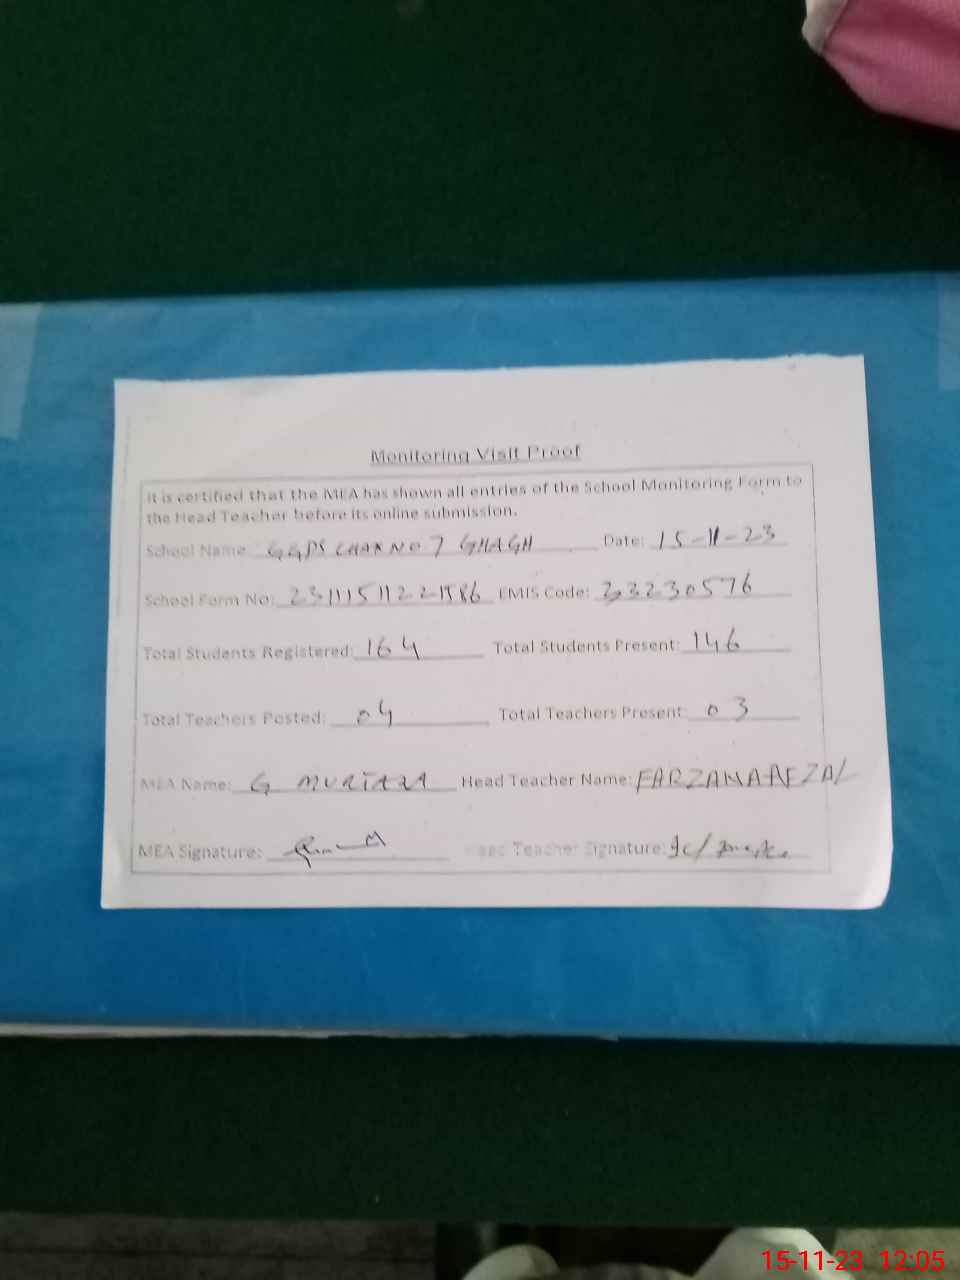 Monitoring Visit Proof
It is certified that the MEA has shown all entries of the School Monitoring Form to
the Head Teacher before its online submission.
School Name: GGPS CHAK NO 7 GHAGH Date: 15-11-23
School Form No: EMIS Code: 33230576
Total Students Registered: 164 Total Students Present: 146
Total Teachers Posted: 04 Total Teachers Present: 03
MEA Name: G MURTAZA Head Teacher Name: FARZANA AFZAL
MEA Signature: Head Teacher Signature:
15-11-23 12:05